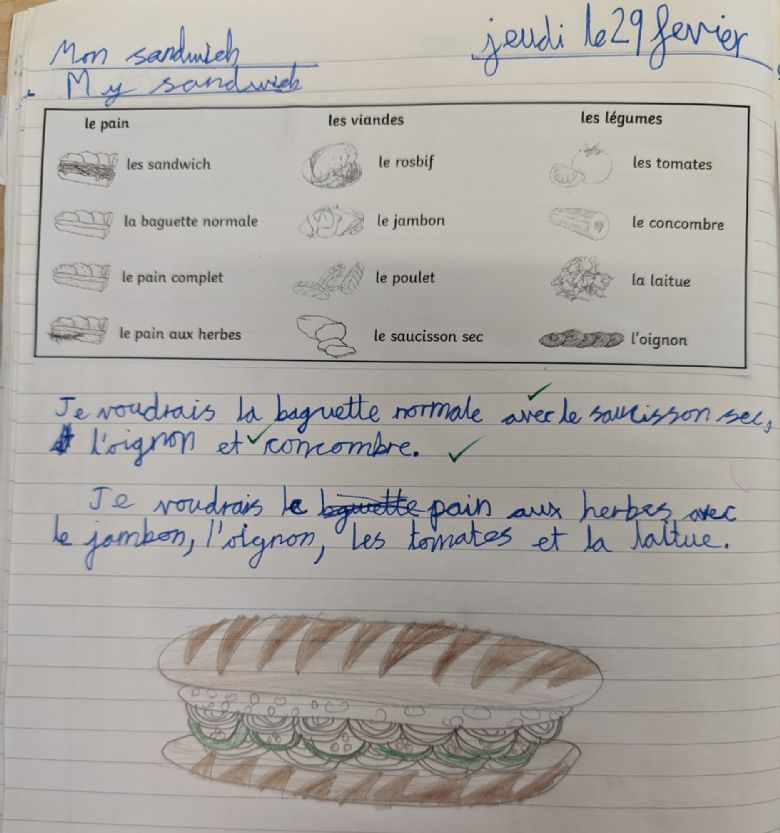 Mon sandwich
jeudi le 29 fevier
My sandwich
le pain
les viandes
les légumes
les sandwich
le rosbif
les tomates
la baguette normale
le jambon
le concombre
le pain complet
le poulet
la laitue
le pain aux herbes
le saucisson sec
l'oignon
Je voudrais la baguette normale avec le saucisson sec,
l'oignon et concombre.
Je voudrais le baguette pain aux herbes avec
le jambon, l'oignon, les tomates et la laitue.